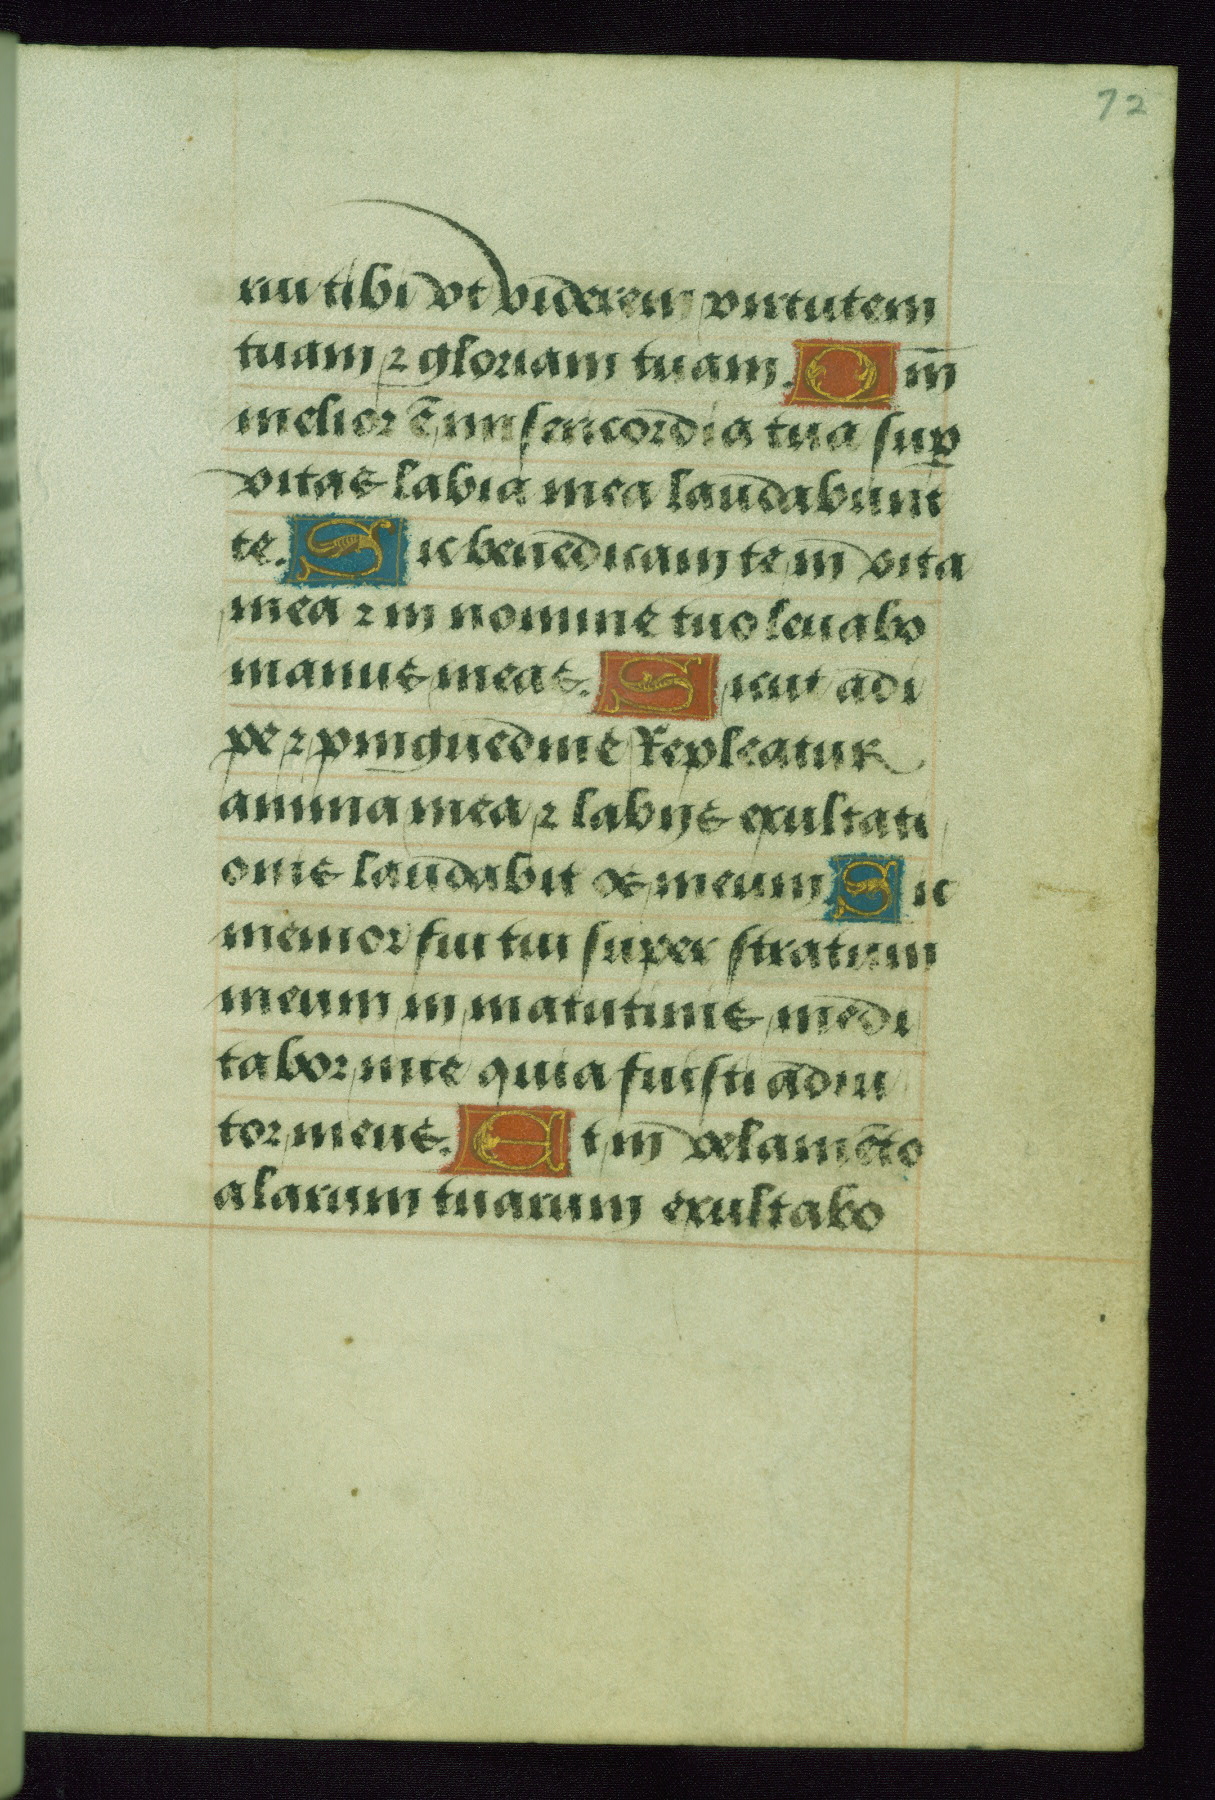 72
rui tibi vt viderem virtutem
tuam ⁊ gloriam tuam. Qm̄
melior ē misericordia tua suꝑ
vitas labia mea laudabunt
te. Sic benedicam te in vita
mea ⁊ in nomine tuo leuabo
manus meas. Sicut adi
pe ⁊ pinguedine Repleatur
anima mea ⁊ labijs exultati
onis laudabit os meum Sic
memor fui tui super stratum
meum in matutinis medi
tabor in te quia fuisti adiu
tor meus. Et in velamēto
alarum tuarum exultabo